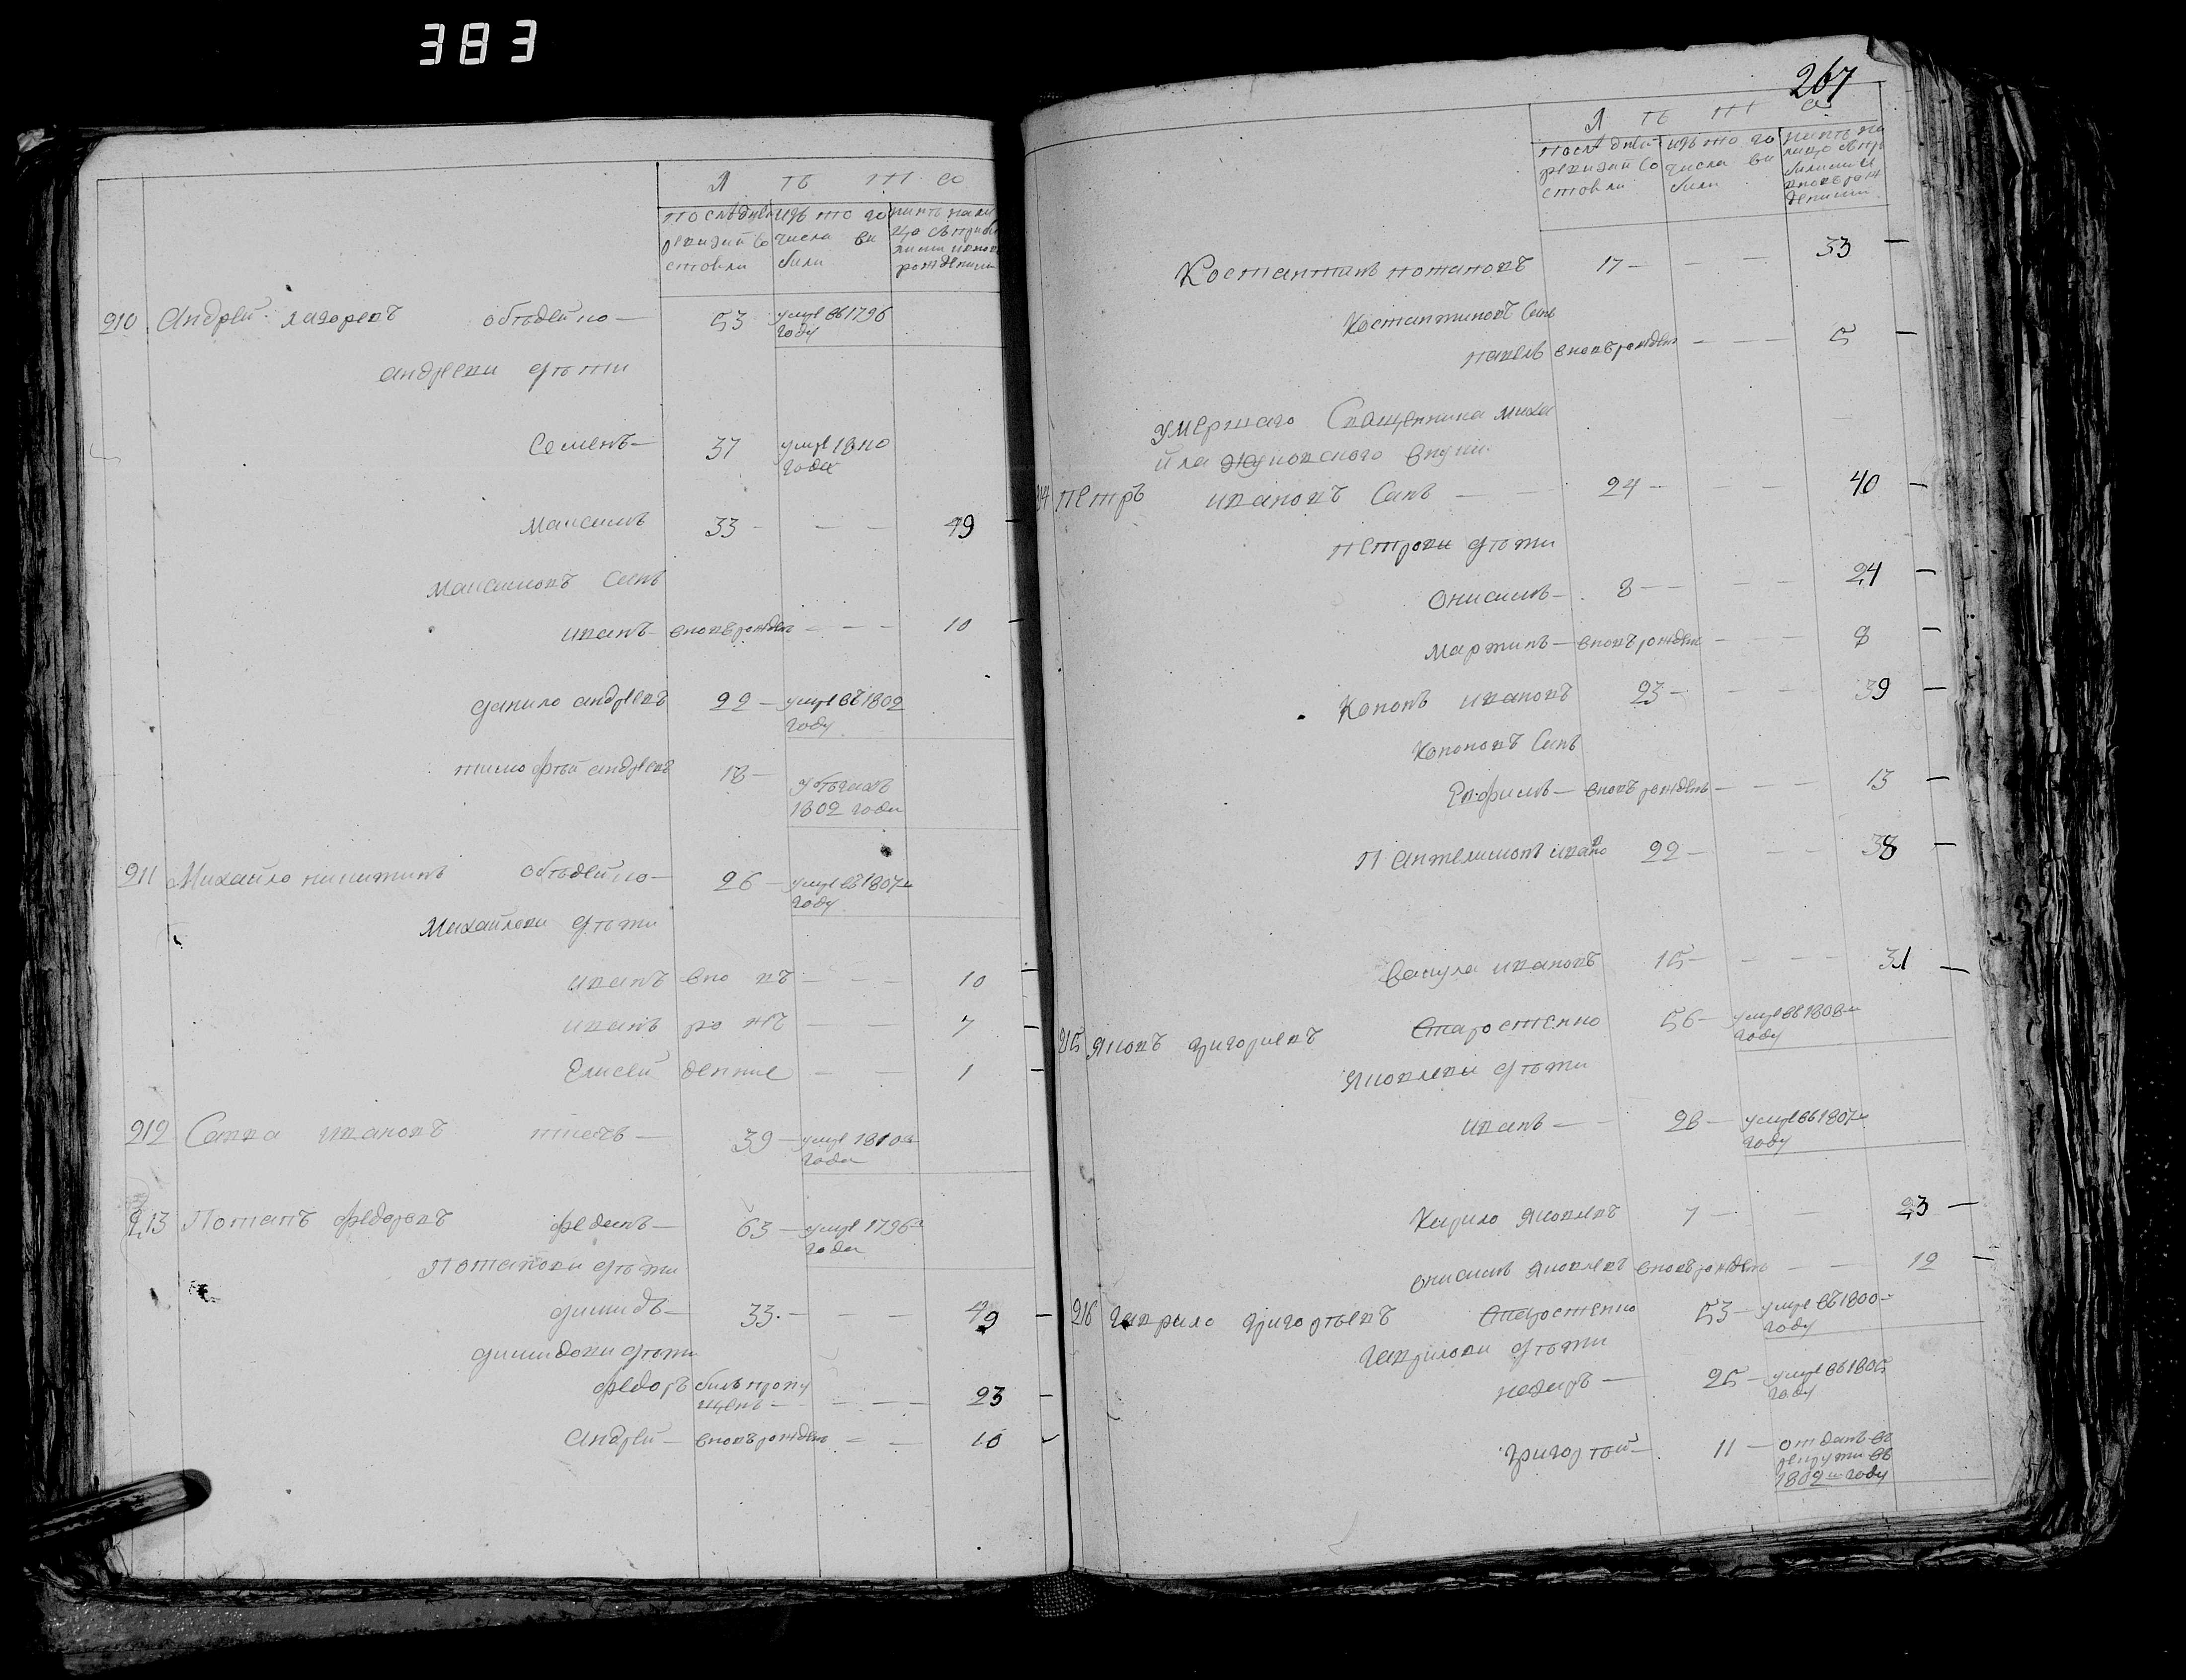 383
Л ѣ т а
последней ревизии состояли
изъ того числа выбыли
ныне на лицо съ прибылыми и вновь рожденыи
210 Андрей лазоревъ объдейко — 53 умре въ 1796 году
андреевы дѣти
Семенъ — 37 умре 1810 года
Максимъ 33 — — — 49
Максимовъ Сынъ
иванъ вновь рожден — — — 10
данило андреевъ 22 — умре въ 1802 году
тимофѣй андреевъ 18 —
1802 года
211 Михайло никитинъ объдейко — 26 — умре въ 1807м году
Михайловы дѣти
иванъ вно въ — — — 10
иванъ ро жъ — — — 7
Елисей денние — — 1
212 Савка ивановъ — 39 — умре 1810го года
213 Потапъ федоровъ — 63 — умре 1796го года
Потаповы дѣти
димидъ — 33. — — — 49
димидовы дѣти
федоръ былъ пропущенъ — — — — 23
Андрей — вновь рожден — — 10
267
Л ѣ т а
последней ревизии состояли
изъ того числа выбыли
ныне на лицо съ прибылыми и вновь рожденыи
Костантинъ потаповъ 17 — — — 33
Костантиновъ Сынъ
павелъ вновь рожден — — — 5
умершаго Священника михайла внуки.
214 Петръ ивановъ Сынъ — — 24 — — — 40
петровы дѣти
Онисимъ — 8 — — — — 24
Мартинъ — вновь рожден — — — 8
Кононъ ивановъ 23 — — — 39
Кононовъ Сынъ
Евфимъ — вновь рожденъ — — — 13
Пантелимонъ ивано 22 — — — 38
вакула ивановъ 15 — — — — 31
215 Яковъ григориевъ Старостенко 56 — умре въ 1808м году
Яковлевы дѣти
иванъ — — 28 — умре въ 1807м году
Кирило Яковлевъ 7 — — 23
онисимъ Яковлевъ вновь рожден — — 12
216 Гаврило григорѣевъ Старостенко 53 — умре въ 1800м году
Гавриловы дѣти
назаръ — 25 — умре въ 1805 году
Григорѣй — 11 — отданъ въ рекруты въ 1802м году